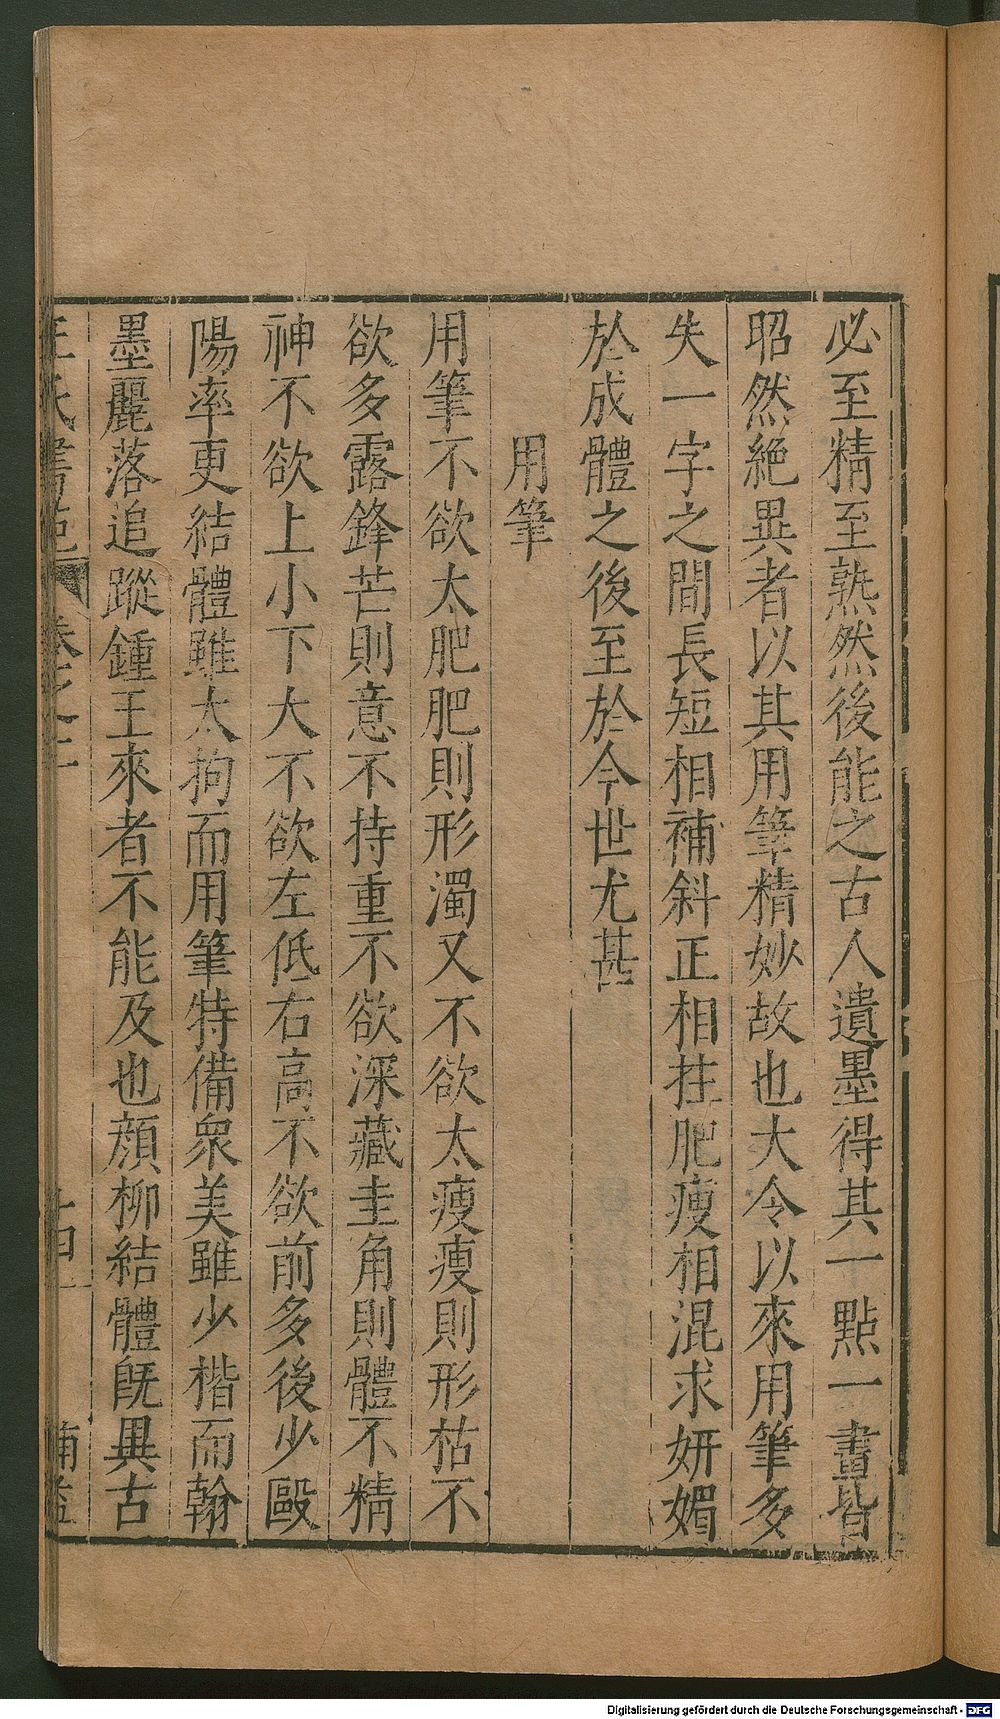 必至精至熟然後能之古人遺墨得其一點一畫皆
昭然絶異者以其用筆精妙故也大令以來用筆多
失一字之間長短相補斜正相拄肥瘦相混求妍媚
於成體之後至於今世尤甚
用筆
用筆不欲太肥肥則形濁又不欲太瘦瘦則形枯不
欲多露鋒芒則意不持重不欲深藏圭角則體不精
神不欲上小下大不欲左低右高不欲前多後少歐
陽率更結體雖太拘而用筆特備衆美雖少楷而翰
墨麗落追蹤鍾王來者不能及也顔柳結體旣異古
王氏書苑 卷之二 十四
Digitalisierung gefördert durch die Deutsche Forschungsgemeinschaft - DFG